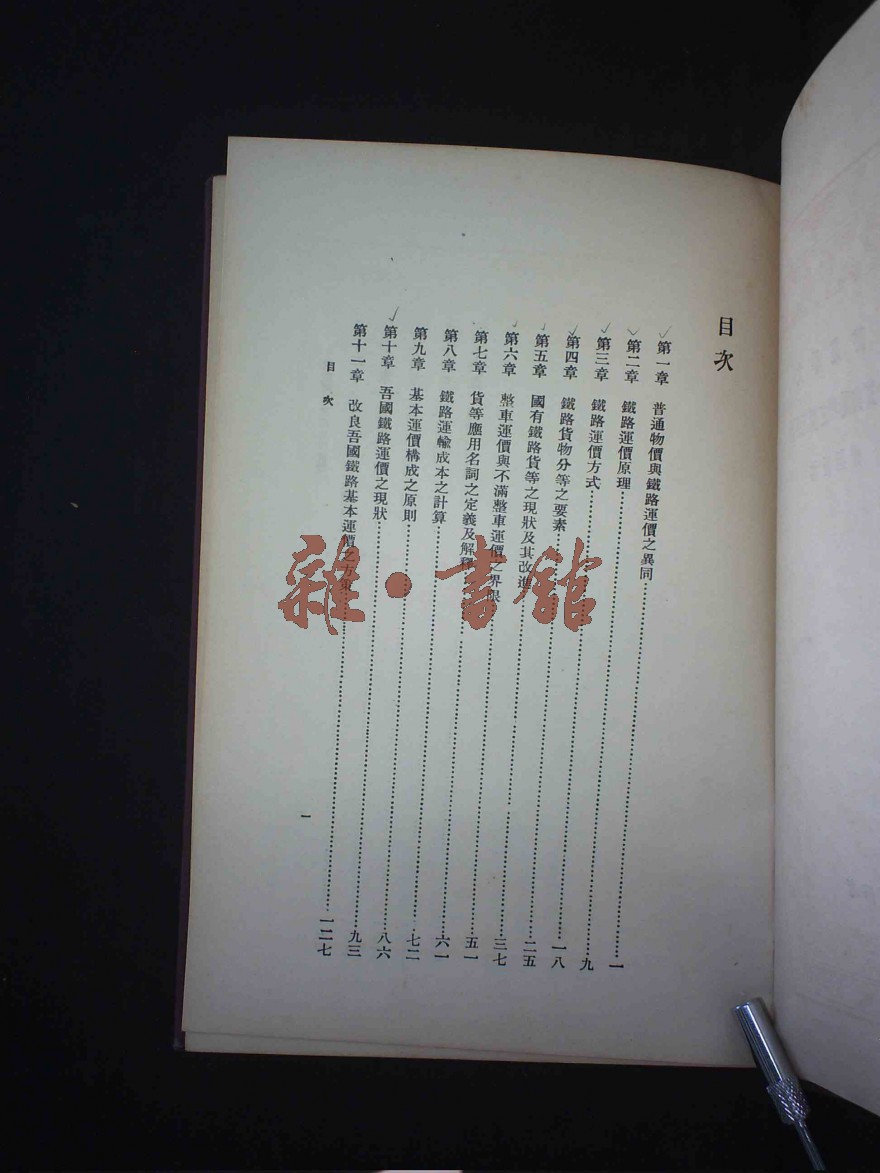 目次
第一章 普通物價與鐵路運價之異同……一
第二章 鐵路運價原理……九
第三章 鐵路運價方式……一八
第四章 鐵路貨物分等之要素……二五
第五章 國有鐵路貨等之現狀及其改進……三七
第六章 整車運價與不滿整車運價之界限……五一
第七章 貨等應用名詞之定義及解釋……六一
第八章 鐵路運輸成本之計算……七二
第九章 基本運價構成之原則……八六
第十章 吾國鐵路運價之現狀……九三
第十一章 改良吾國鐵路基本運價之方……一二七
目次
一
雜·書館